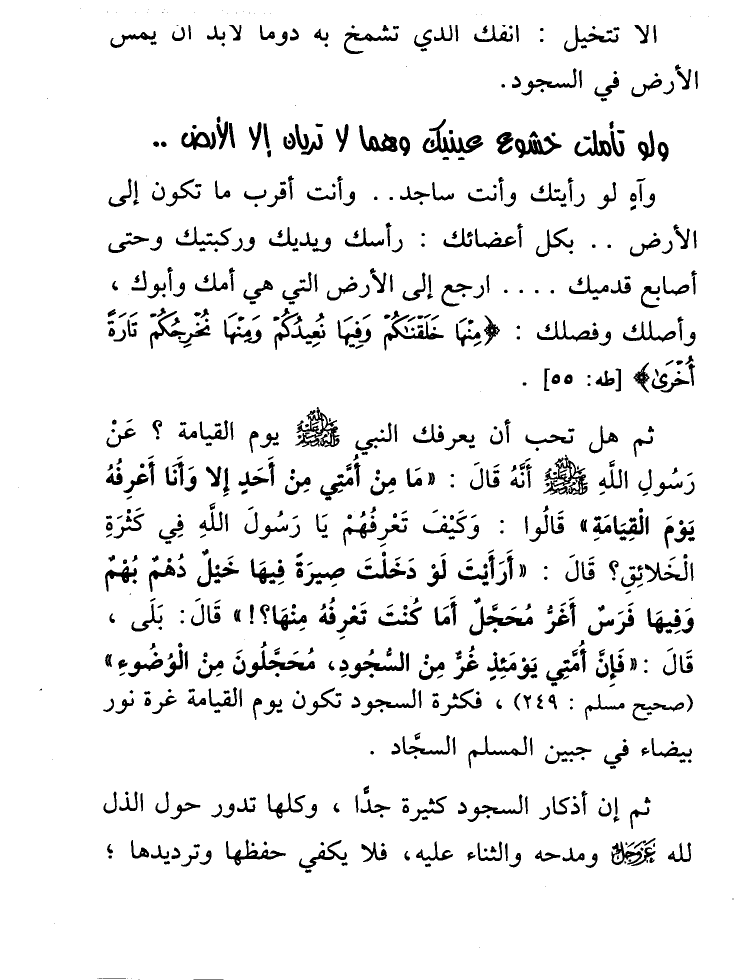 ألا تتخيل : أنفك الذي تشمخ به دوما لابد أن يمس
الأرض في السجود.
ولو تأملت خشوع عينيك وهما لا تريان إلا الأرض ..
وآهٍ لو رأيتك وأنت ساجد.. وأنت أقرب ما تكون إلى
الأرض .. بكل أعضائك : رأسك ويديك وركبتيك وحتى
أصابع قدميك .... ارجع إلى الأرض التي هي أمك وأبوك ،
وأصلك وفصلك : ﴿مِنْهَا خَلَقْنَٰكُمْ وَفِيهَا نُعِيدُكُمْ وَمِنْهَا نُخْرِجُكُمْ تَارَةً
أُخْرَىٰ﴾ [طه: ٥٥] .
ثم هل تحب أن يعرفك النبي ﷺ يوم القيامة ؟ عَنْ
رَسُولِ اللَّهِ ﷺ أَنَّهُ قَالَ : «مَا مِنْ أُمَّتِي مِنْ أَحَدٍ إِلا وَأَنَا أَعْرِفُهُ
يَوْمَ الْقِيَامَةِ» قَالُوا : وَكَيْفَ تَعْرِفُهُمْ يَا رَسُولَ اللَّهِ فِي كَثْرَةِ
الْخَلائِقِ؟ قَالَ : «أَرَأَيْتَ لَوْ دَخَلْتَ صِيرَةً فِيهَا خَيْلٌ دُهْمٌ بُهْمٌ
وَفِيهَا فَرَسٌ أَغَرُّ مُحَجَّلٌ أَمَا كُنْتَ تَعْرِفُهُ مِنْهَا؟!» قَالَ: بَلَى ،
قَالَ :«فَإِنَّ أُمَّتِي يَوْمَئِذٍ غُرٌّ مِنْ السُّجُودِ، مُحَجَّلُونَ مِنْ الْوُضُوءِ»
(صحيح مسلم : ٢٤٩) ، فكثرة السجود تكون يوم القيامة غرة نور
بيضاء في جبين المسلم السجَّاد .
ثم إن أذكار السجود كثيرة جدًّا ، وكلها تدور حول الذل
لله عَزَّوَجَلَّ ومدحه والثناء عليه، فلا يكفي حفظها وترديدها ؛